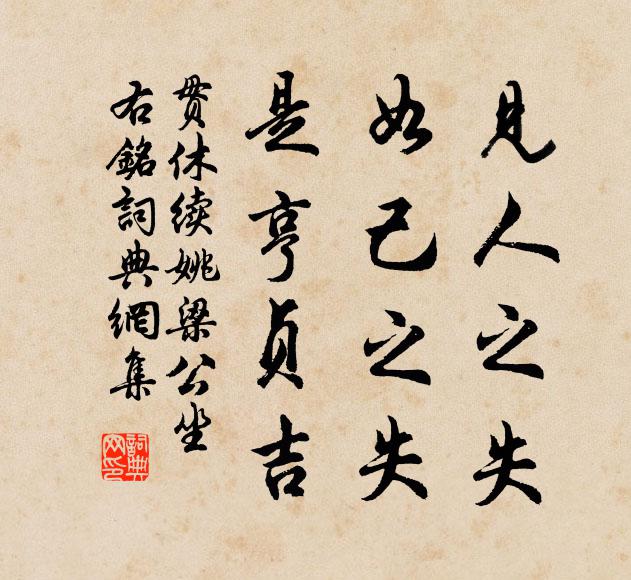 見人之失
如己之失
是亨貞吉
貫休续姚梁公坐
右銘詞典網集
詞典网印